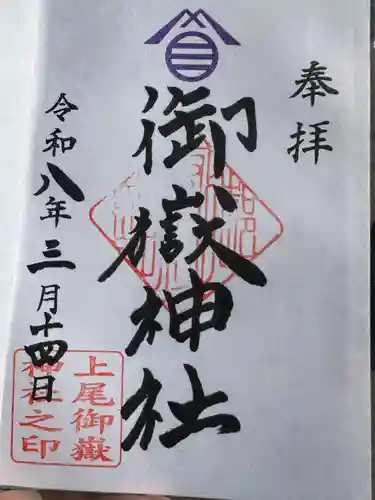 奉拝
御嶽神社
令和八年三月十四日
上尾御嶽
神社之印